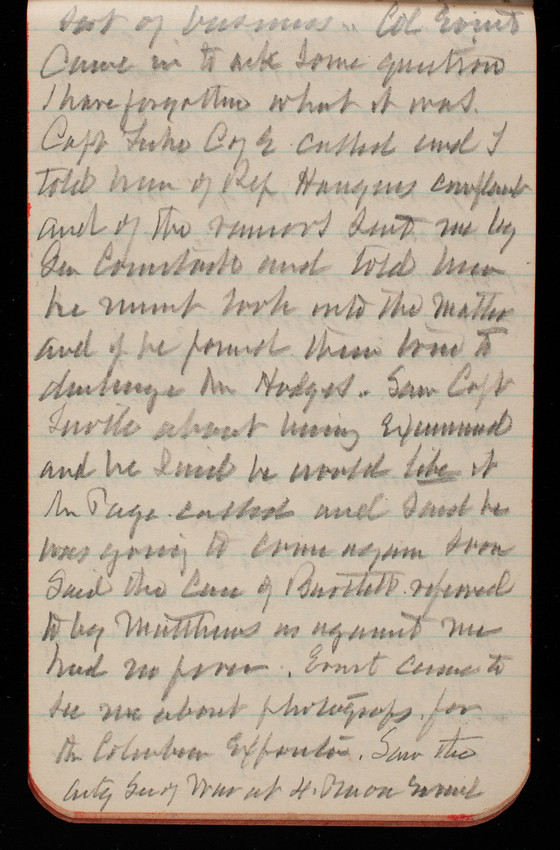 sort of business. Col Ernst
Came in to ask some question
I have forgotten what it was.
Capt Fiske Cof E called and I
told him of Rep Haugens complaint
and of the rumors sent me by
Gen Comstock and told him
he must look into the Matter
and if he found them true to
discharge Mr Hodges. Saw Capt
Turtle about being Examined
and he said he would like it
Mr Page called and said he
was going to come again soon
Said the Case of Bartlett referred
to by Matthews as against me
had no force. Ernst came to
see me about photographs for
the Columbian Exposition. Saw the
acty Sec of War at 4.